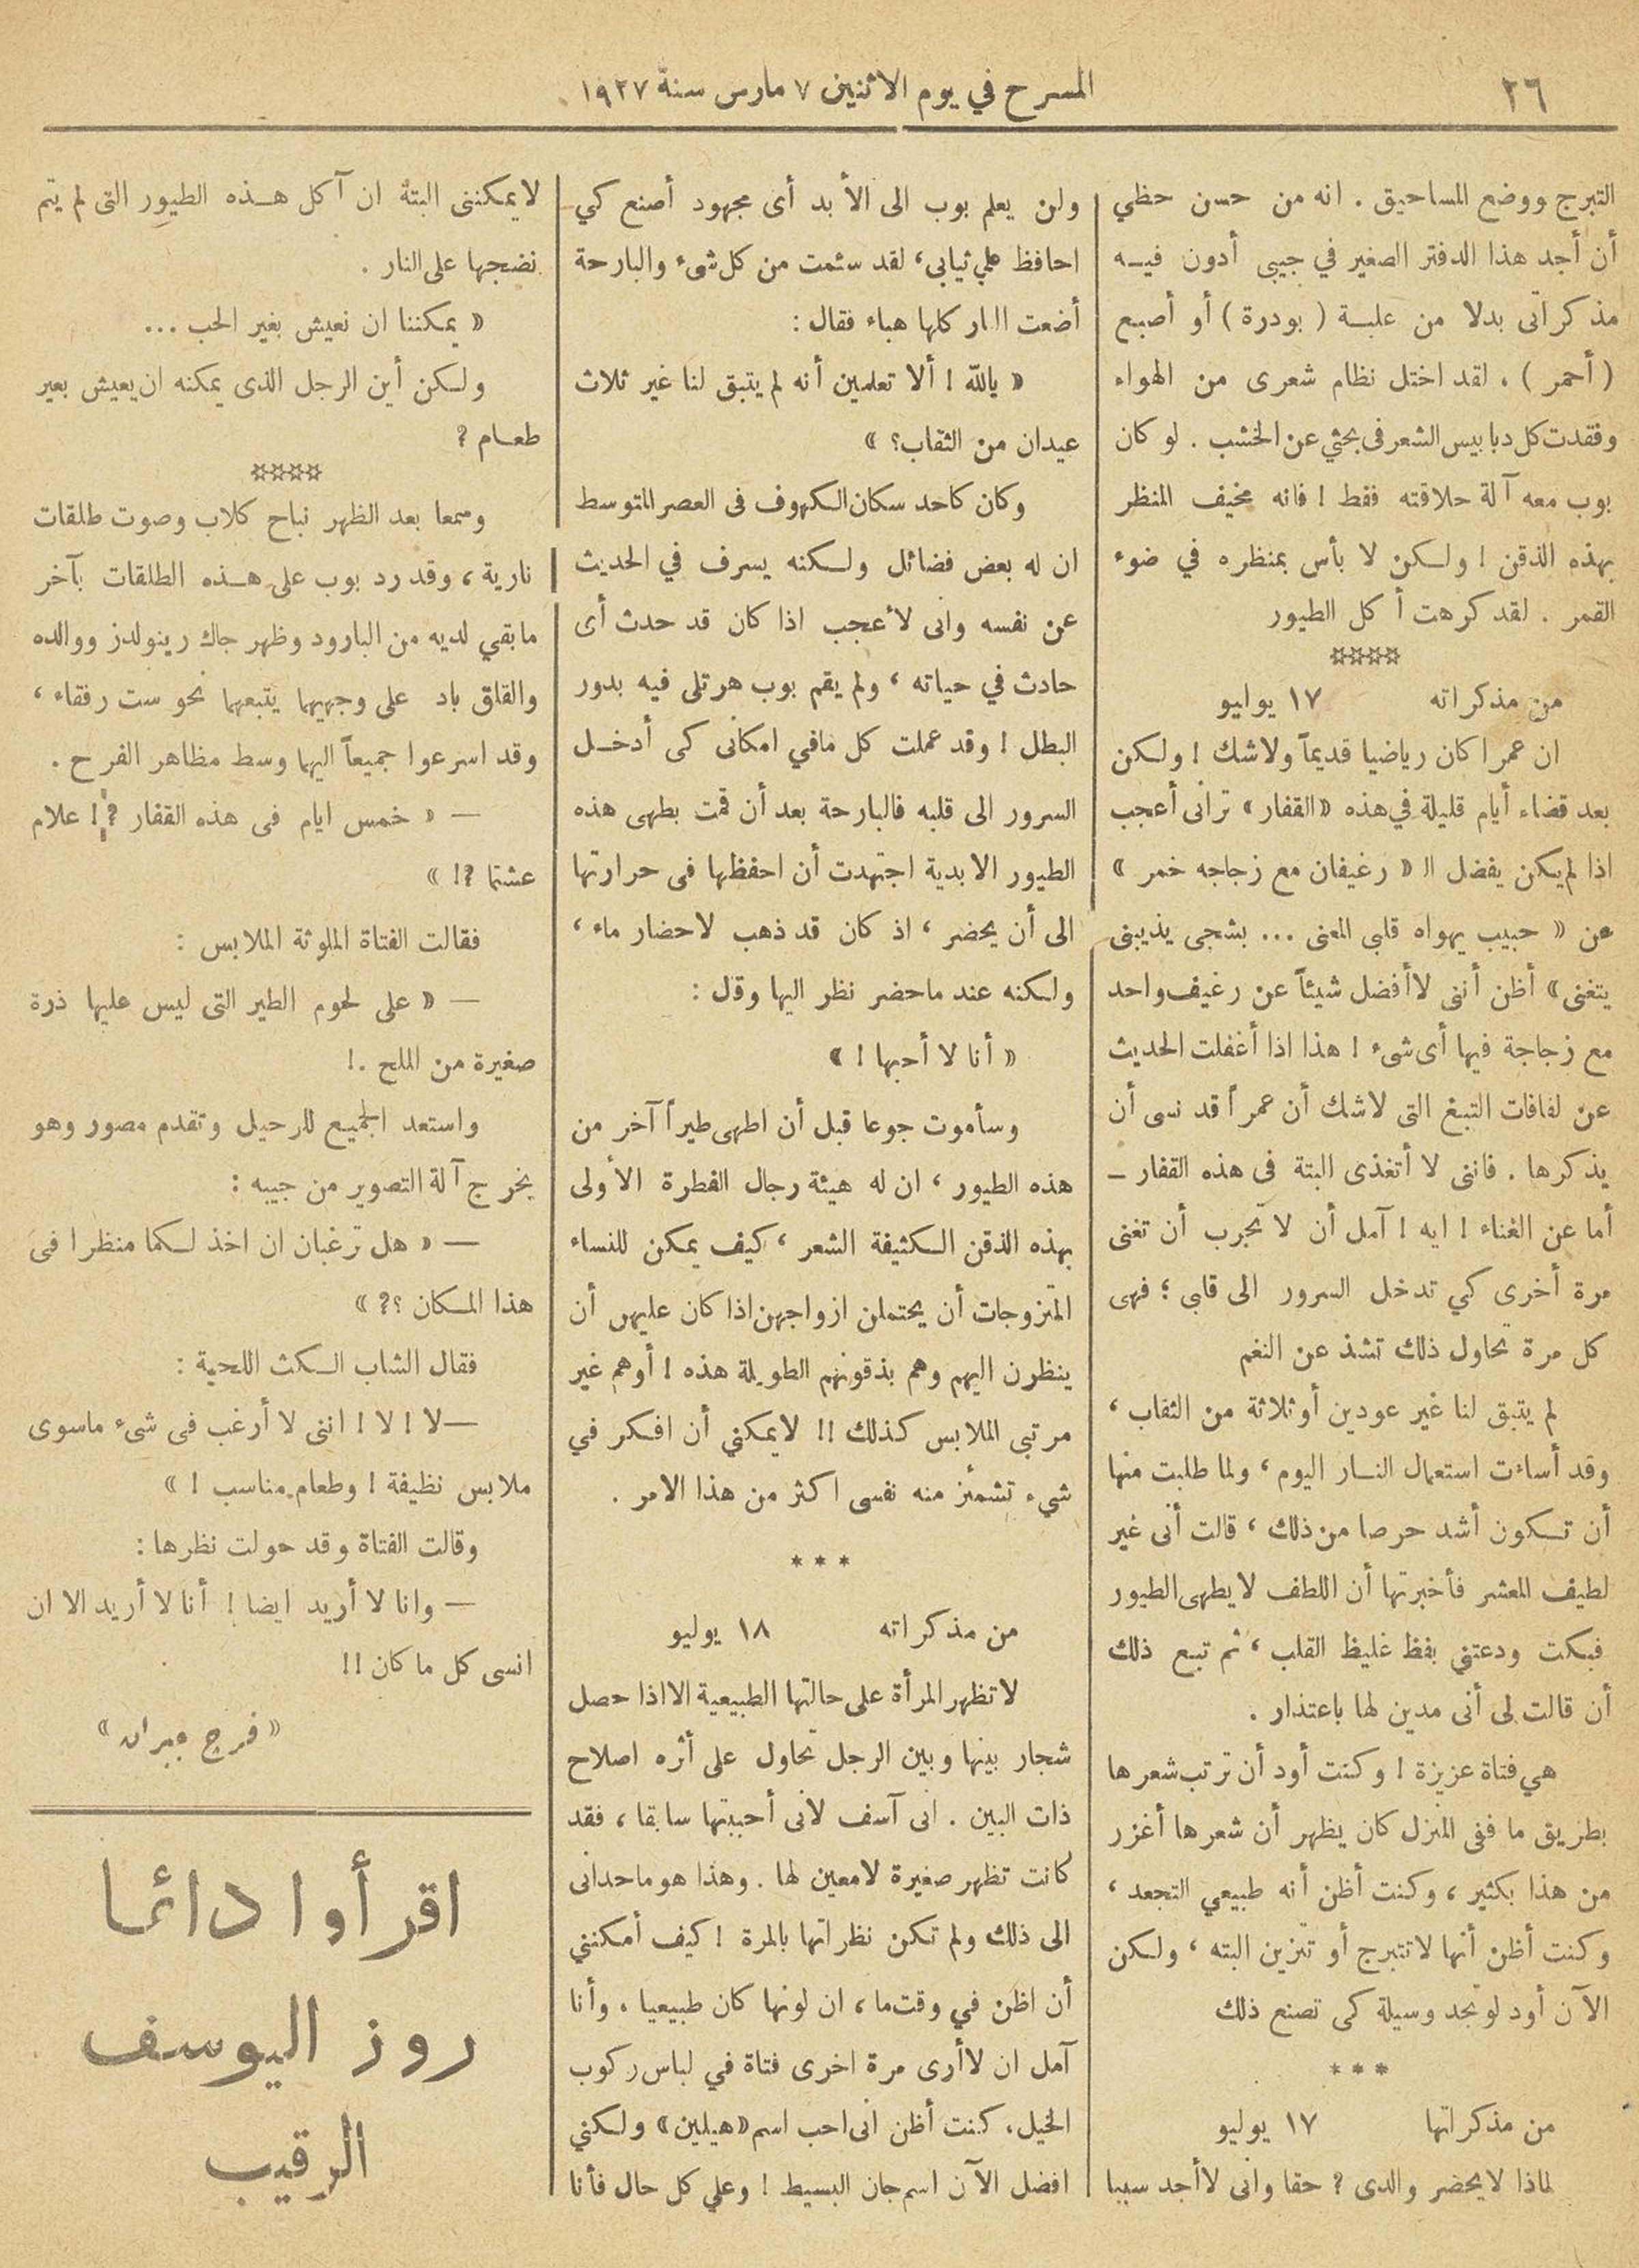 ٢٦
المسرح في يوم الاثنين ٧ مارس سنة ١٩٢٧
التبرج ووضع المساحيق . انه من حسن حظي
أن أجد هذا الدفتر الصغير في جيبى أدون فيه
مذكراتى بدلا من علبة ( بودرة ) أو أصبع
( أحمر ) . لقد اختل نظام شعرى من الهواء
وفقدت كل دبابيس الشعر فى بحثي عن الخشب . لو كان
بوب معه آلة حلاقته فقط ! فانه مخيف المنظر
بهذه الذقن ! ولكن لا بأس بمنظره في ضوء
القمر . لقد كرهت أكل الطيور
****
من مذكراته ١٧ يوليو
ان عمرا كان رياضيا قديماً ولاشك ! ولكن
بعد قضاء أيام قليلة في هذه « القفار » ترانى أعجب
اذا لم يكن يفضل ال « رغيفان مع زجاجه خمر »
عن « حبيب يهواه قلبى المعنى ... بشجى يذيبنى
يتغنى » أظن أننى لاأفضل شيئاً عن رغيف واحد
مع زجاجة فيها أى شىء ! هذا اذا أغفلت الحديث
عن لفافات التبغ التى لاشك أن عمراً قد نسى أن
يذكرها . فاننى لا أتغذى البتة فى هذه القفار —
أما عن الغناء ! ايه ! آمل أن لا تجرب أن تغنى
مرة أخرى كي تدخل السرور الى قلبى ؛ فهى
كل مرة تحاول ذلك تشذ عن النغم
لم يتبق لنا غير عودين أو ثلاثة من الثقاب ،
وقد أساءت استعمال النار اليوم ، ولما طلبت منها
أن تكون أشد حرصا من ذلك ، قالت أنى غير
لطيف المعشر فأخبرتها أن اللطف لا يطهى الطيور
فبكت ودعتني بفظ غليظ القلب ، ثم تبع ذلك
أن قالت لى أنى مدين لها باعتذار .
هي فتاة عزيزة ! وكنت أود أن ترتب شعرها
بطريق ما ففى المنزل كان يظهر أن شعرها أغزر
من هذا بكثير ، وكنت أظن أنه طبيعي التجعد ،
وكنت أظن أنها لا تتبرج أو تتزين البته ، ولكن
الآن أود لو تجد وسيلة كى تصنع ذلك
***
من مذكراتها ١٧ يوليو
لماذا لايحضر والدى ? حقا وانى لاأجد سببا
ولن يعلم بوب الى الأبد أى مجهود أصنع كي
احافظ علي ثيابى ، لقد سئمت من كل شىء والبارحة
أضعت النار كلها هباء فقال :
« يالله ! ألا تعلمين أنه لم يتبق لنا غير ثلاث
عيدان من الثقاب؟ »
وكان كاحد سكان الكهوف فى العصر المتوسط
ان له بعض فضائل ولكنه يسرف في الحديث
عن نفسه وانى لأعجب اذا كان قد حدث أى
حادث في حياته ، ولم يقم بوب هرتلى فيه بدور
البطل ! وقد عملت كل مافي امكانى كى أدخل
السرور الى قلبه فالبارحة بعد أن قمت بطهى هذه
الطيور الابدية اجتهدت أن احفظها فى حرارتها
الى أن يحضر ، اذ كان قد ذهب لاحضار ماء ،
ولكنه عند ماحضر نظر اليها وقل :
« أنا لا أحبها ! »
وسأموت جوعا قبل أن اطهى طيراً آخر من
هذه الطيور ، ان له هيئة رجال الفطرة الأولى
بهذه الذقن الكثيفة الشعر ، كيف يمكن للنساء
المتزوجات أن يحتملن ازواجهن اذا كان عليهن أن
ينظرن اليهم وهم بذقونهم الطويلة هذه ! أو هم غير
مرتبى الملابس كذلك !! لايمكني أن افكر في
شيء تشمئز منه نفسى اكثر من هذا الامر .
***
من مذكراته ١٨ يوليو
لا تظهر المرأة على حالتها الطبيعية الا اذا حصل
شجار بينها وبين الرجل تحاول على أثره اصلاح
ذات البين . انى آسف لانى أحببتها سابقا ، فقد
كانت تظهر صغيرة لامعين لها . وهذا هو ماحدانى
الى ذلك ولم تكن نظراتها بالمرة ! كيف أمكنني
أن اظن في وقت ما ، ان لونها كان طبيعيا . وأنا
آمل ان لاأرى مرة اخرى فتاة في لباس ركوب
الخيل ، كنت أظن انى احب اسم «هيلين» ولكني
افضل الآن اسم جان البسيط ! وعلي كل حال فأنا
لايمكننى البتة ان آكل هذه الطيور التى لم يتم
نضجها على النار .
« يمكننا ان نعيش بغير الحب ...
ولكن أين الرجل الذى يمكنه ان يعيش بعير
طعام ?
****
وسمعا بعد الظهر نباح كلاب وصوت طلقات
نارية ، وقد رد بوب على هذه الطلقات بآخر
مابقي لديه من البارود وظهر جاك رينولدز ووالده
والقلق باد على وجهيهما يتبعهما نحو ست رفقاء ،
وقد اسرعوا جميعاً اليهما وسط مظاهر الفرح .
— « خمس ايام فى هذه القفار ?! علام
عشتما ?! »
فقالت الفتاة الملوثة الملابس :
— « على لحوم الطير التى ليس عليها ذرة
صغيرة من الملح .!
واستعد الجميع للرحيل وتقدم مصور وهو
يخرج آلة التصوير من جيبه :
— « هل ترغبان ان اخذ لكما منظرا فى
هذا المكان ؟? »
فقال الشاب الكث اللحية :
— لا ! لا ! اننى لا أرغب فى شىء ماسوى
ملابس نظيفة ! وطعام مناسب ! »
وقالت الفتاة وقد حولت نظرها :
— وانا لا أريد ايضا ! أنا لا أريد الا ان
انسى كل ما كان !!
« فرج جبران »
اقرأوا دائما
روز اليوسف
الرقيب